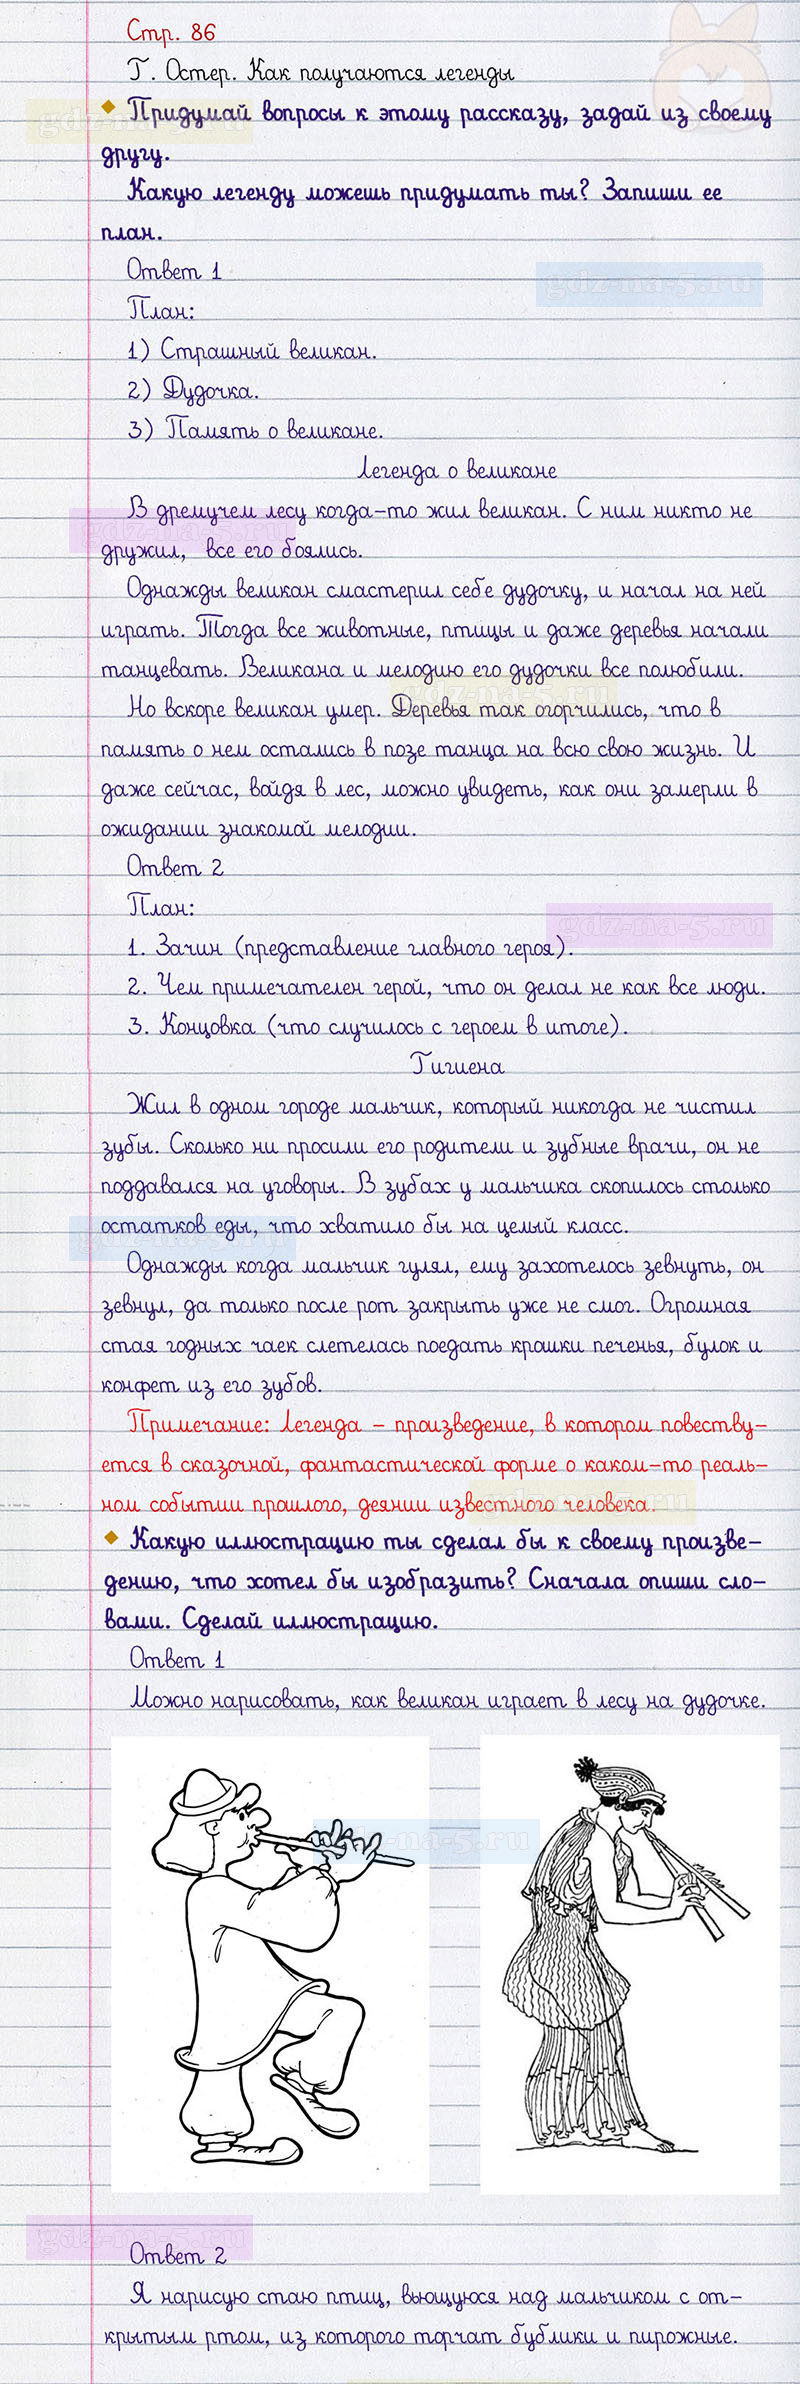 Стр. 86
Г. Остер. Как получаются легенды
Придумай вопросы к этому рассказу, задай из своему
другу.
Какую легенду можешь придумать ты? Запиши ее
план.
Ответ 1
План:
1) Страшный великан.
2) Дудочка.
3) Память о великане.
Легенда о великане
В дремучем лесу когда-то жил великан. С ним никто не
дружил, все его боялись.
Однажды великан смастерил себе дудочку, и начал на ней
играть. Тогда все животные, птицы и даже деревья начали
танцевать. Великана и мелодию его дудочки все полюбили.
Но вскоре великан умер. Деревья так огорчились, что в
память о нем остались в позе танца на всю свою жизнь. И
даже сейчас, войдя в лес, можно увидеть, как они замерли в
ожидании знакомой мелодии.
Ответ 2
План:
1. Зачин (представление главного героя).
2. Чем примечателен герой, что он делал не как все люди.
3. Концовка (что случилось с героем в итоге).
Гигиена
Жил в одном городе мальчик, который никогда не чистил
зубы. Сколько ни просили его родители и зубные врачи, он не
поддавался на уговоры. В зубах у мальчика скопилось столько
остатков еды, что хватило бы на целый класс.
Однажды когда мальчик гулял, ему захотелось зевнуть, он
зевнул, да только после рот закрыть уже не смог. Огромная
стая годных чаек слетелась поедать крошки печенья, булок и
конфет из его зубов.
Примечание: Легенда – произведение, в котором повеству-
ется в сказочной, фантастической форме о каком-то реаль-
ном событии прошлого, деянии известного человека.
Какую иллюстрацию ты сделал бы к своему произве-
дению, что хотел бы изобразить? Сначала опиши сло-
вами. Сделай иллюстрацию.
Ответ 1
Можно нарисовать, как великан играет в лесу на дудочке.
Ответ 2
Я нарисую стаю птиц, вьющуюся над мальчиком с от-
крытым ртом, из которого торчат бублики и пирожные.
gdz-na-5.ru
gdz-na-5.ru
gdz-na-5.ru
gdz-na-5.ru
gdz-na-5.ru
gdz-na-5.ru
gdz-na-5.ru
gdz-na-5.ru
gdz-na-5.ru